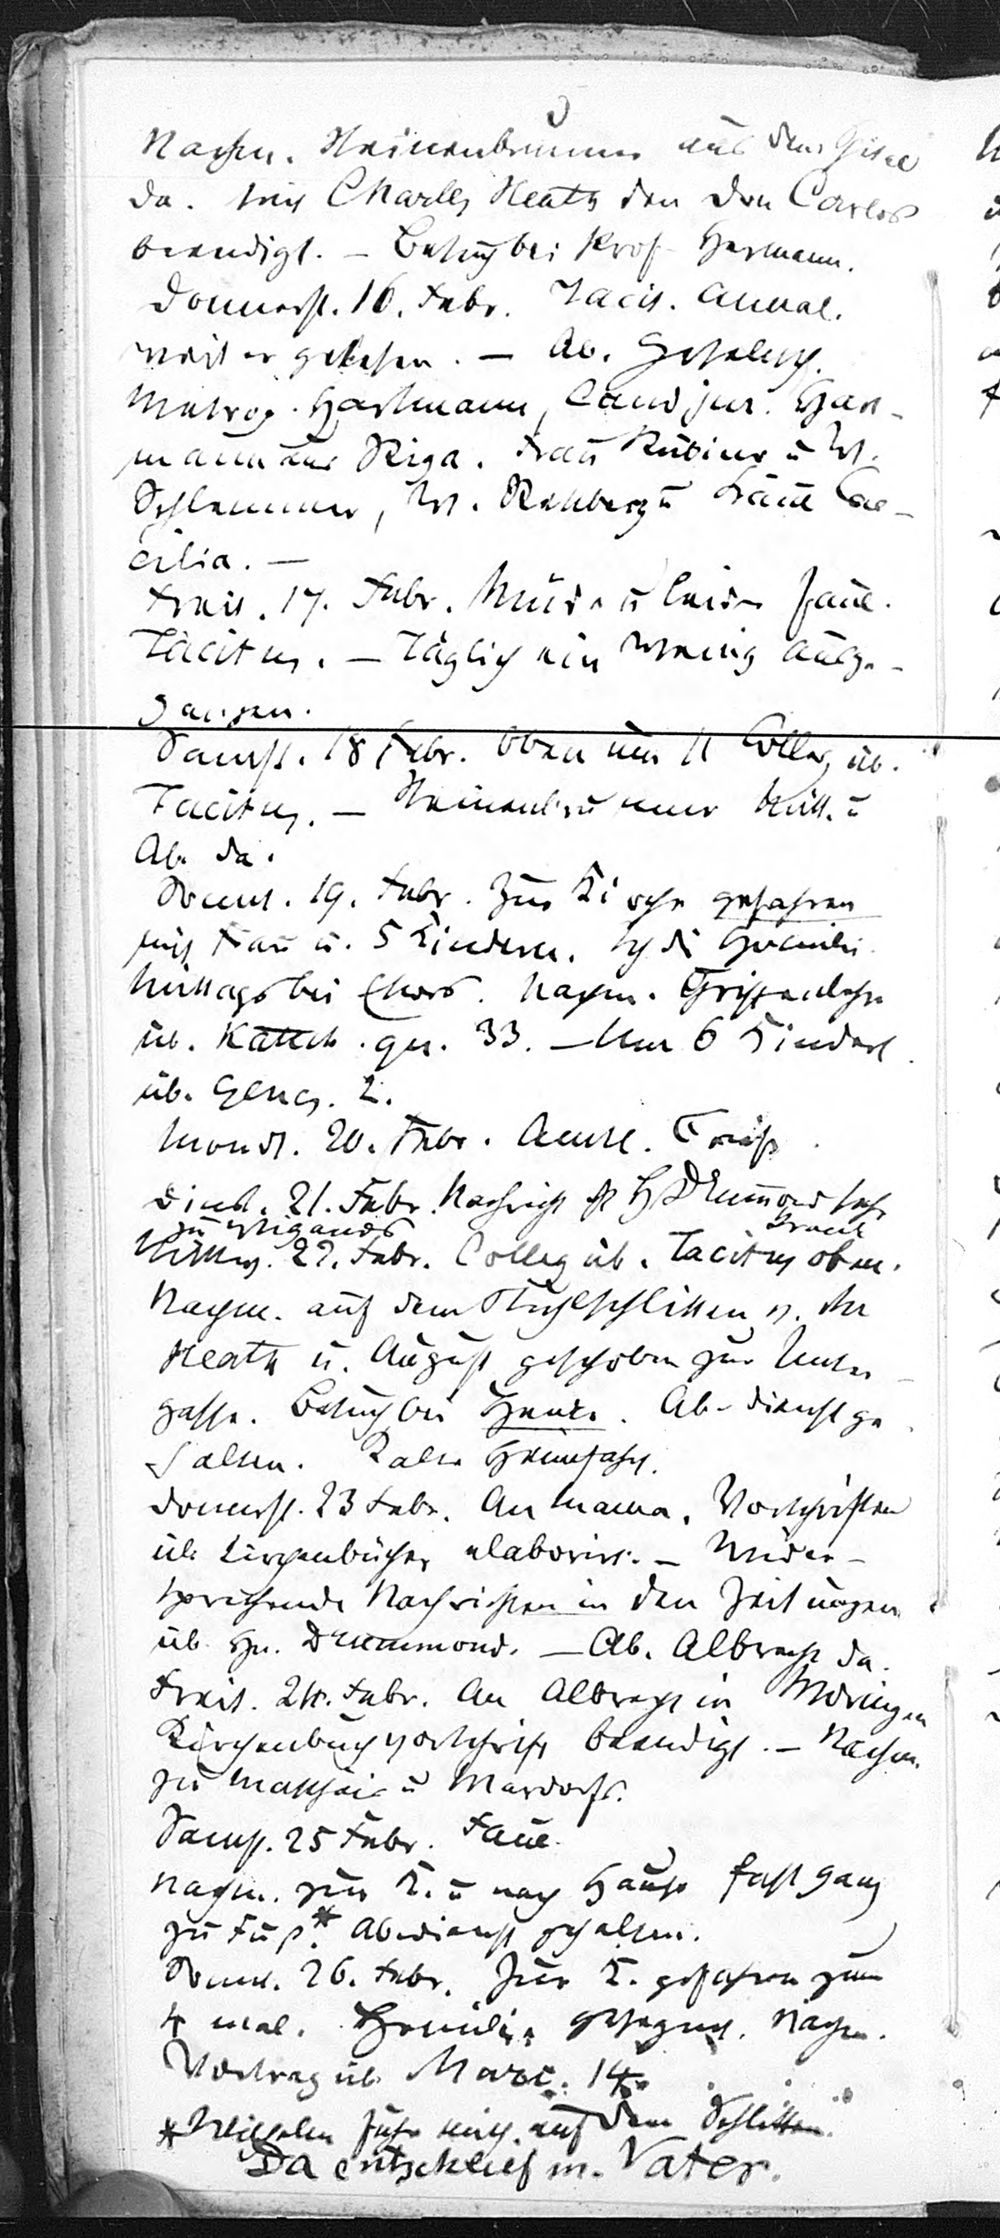 Nachm. Steinenbrunner aus dem Gise
da. mit Charles Heath den Don Carlos
beendigt. – Besuch bei Prof. Hermann.
Donnerst. 16. Febr. Tacit. Annal.
weiter gelesen. – Ab. Gesellsch.
Metrop. Hartmann, Cand jur. Hart-
mann aus Riga. Frau Rubino u W.
Schlemmer, W. Rehberg u Frau Cae-
cilia. –
Freit. 17. Febr. Müde u leider faul.
Tacitus. – Täglich ein wenig ausge-
gangen.
Samst. 18 Febr. Oben um 11 Colleg üb.
Tacitus. – Steinenbrunner Mitt. u
Ab. da.
Sonnt. 19. Febr. Zur Kirche gefahren
mit Frau u. 5 Kindern. Ich die Homilie.
Mittags bei Thiers. Nachm. Christenlehre
üb. Katech. qu. 33. – Nur 6 Kinder
üb. Genes. 2.
Mond. 20. Febr. Amtl. Briefe.
Dinst. 21. Febr. Nachricht H Drummond sehr
zu Wigands krank
Mittw. 22. Febr. Colleg üb. Tacitus oben.
Nachm. auf dem Stuhlschlitten v. Mr
Heath u. August geschoben zur Unter-
gasse. Besuch bei Henke. Ab-dienst ge-
halten. Kalte Heimfahrt.
Donnerst. 23 Febr. An Mama. Vorschriften
üb Kirchenbücher elaborirt. – Wider-
sprechende Nachrichten in den Zeitungen
üb. Hn. Drummond. – Ab. Albrecht da.
Freit. 24. Febr. An Albrecht in Möringen
Kirchenbuchvorschrift beendigt. – Nachm.
zu Matthäis u Mardorfs.
Samst. 25 Febr. Faul.
Nachm. zur K. u nach Hause fast ganz
zu Fuß.* Abendienst gehalten.
Sonnt. 26. Febr. Zur K. gefahren zum
4 mal. Homilie Nachm.
Vortrag üb Marc. 14.
* Wilhelm fuhr mich auf dem Schlitten.
Da entschlief m. Vater.